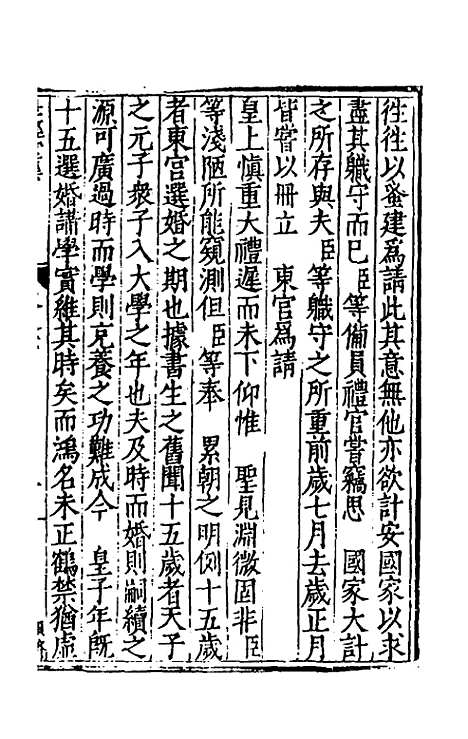 徃徃以蚤建為請此其意無他亦欲計安國家以求
盡其職守而已臣等備員禮官嘗竊思　國家大計
之所存與夫臣等職守之所重前歲七月去歲正月
皆嘗以冊立　東宫為請
皇上慎重大禮遲而未下仰惟　聖見淵微固非臣
等淺陋所能窺測但臣等奉　累朝之明例十五歲
者東宫選婚之期也據書生之舊聞十五歲者天子
之元子衆子入大學之年也夫及時而婚則嗣續之
源可廣過時而學則充養之功難成今　皇子年既
十五選婚講學實維其時矣而鴻名未正鶴禁猶虚